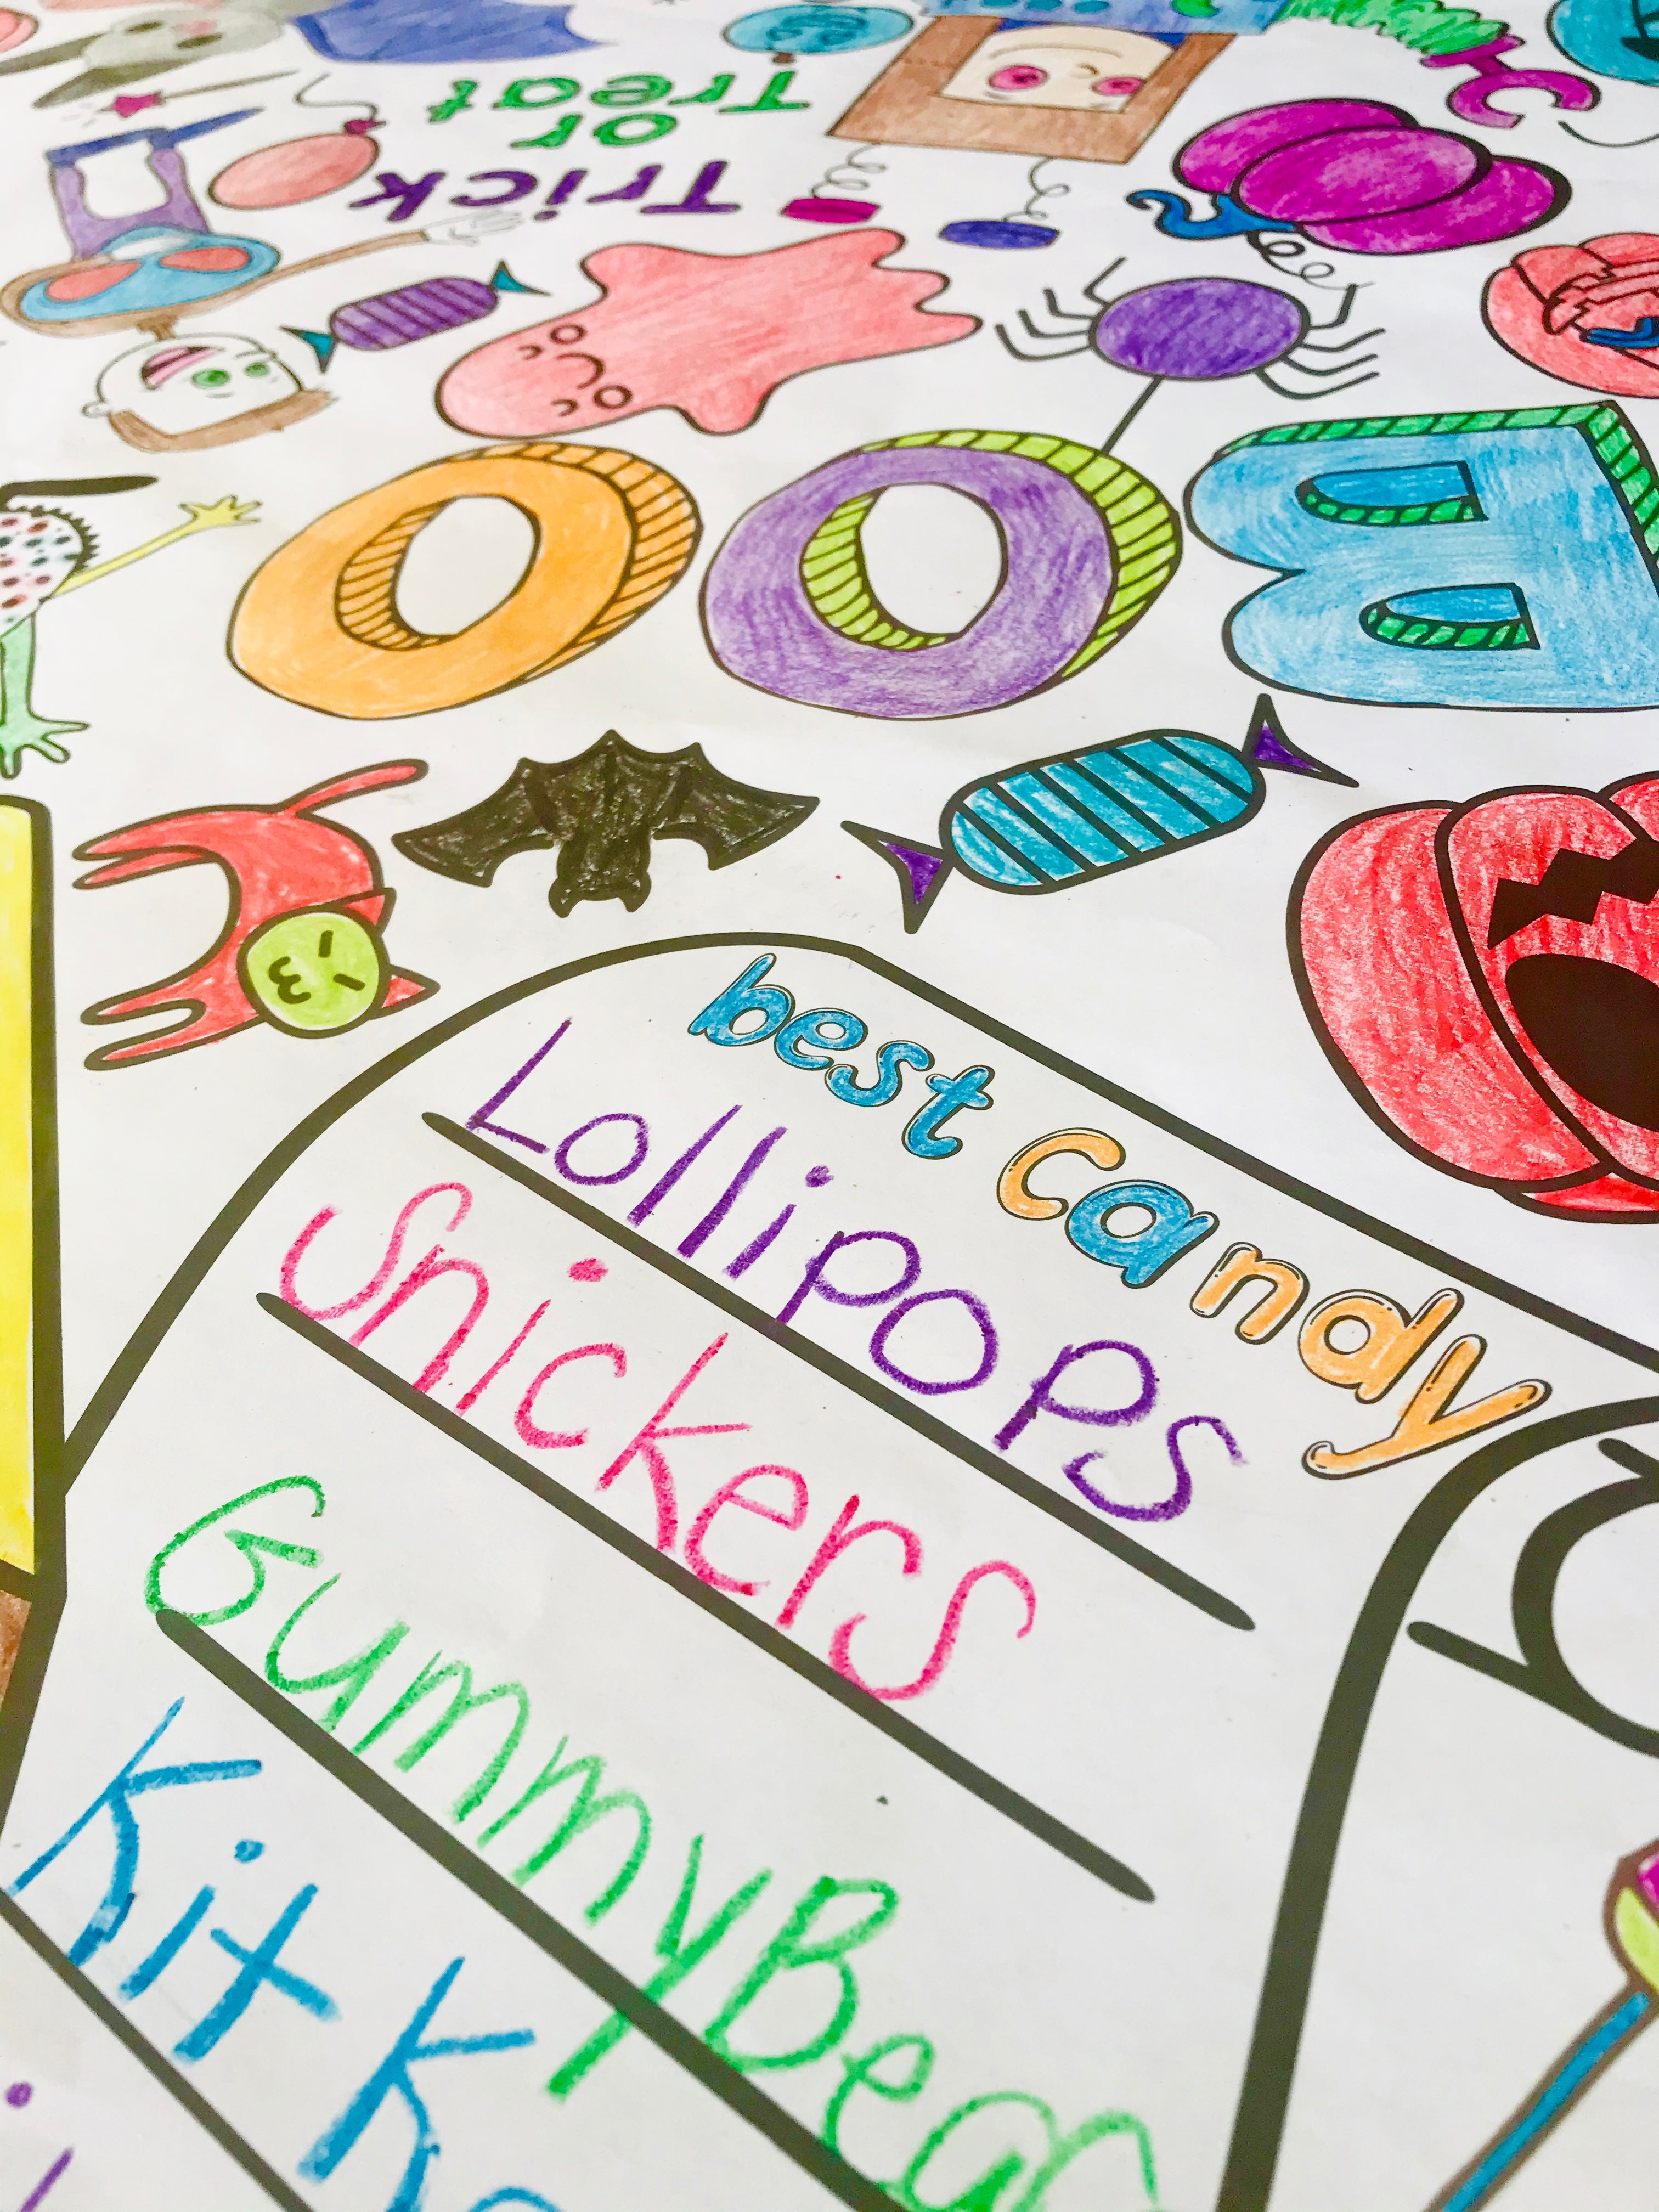 Trick
or
Treat
BOO
best candy
Lollipops
Snickers
Gummy Bea
Kit Ka